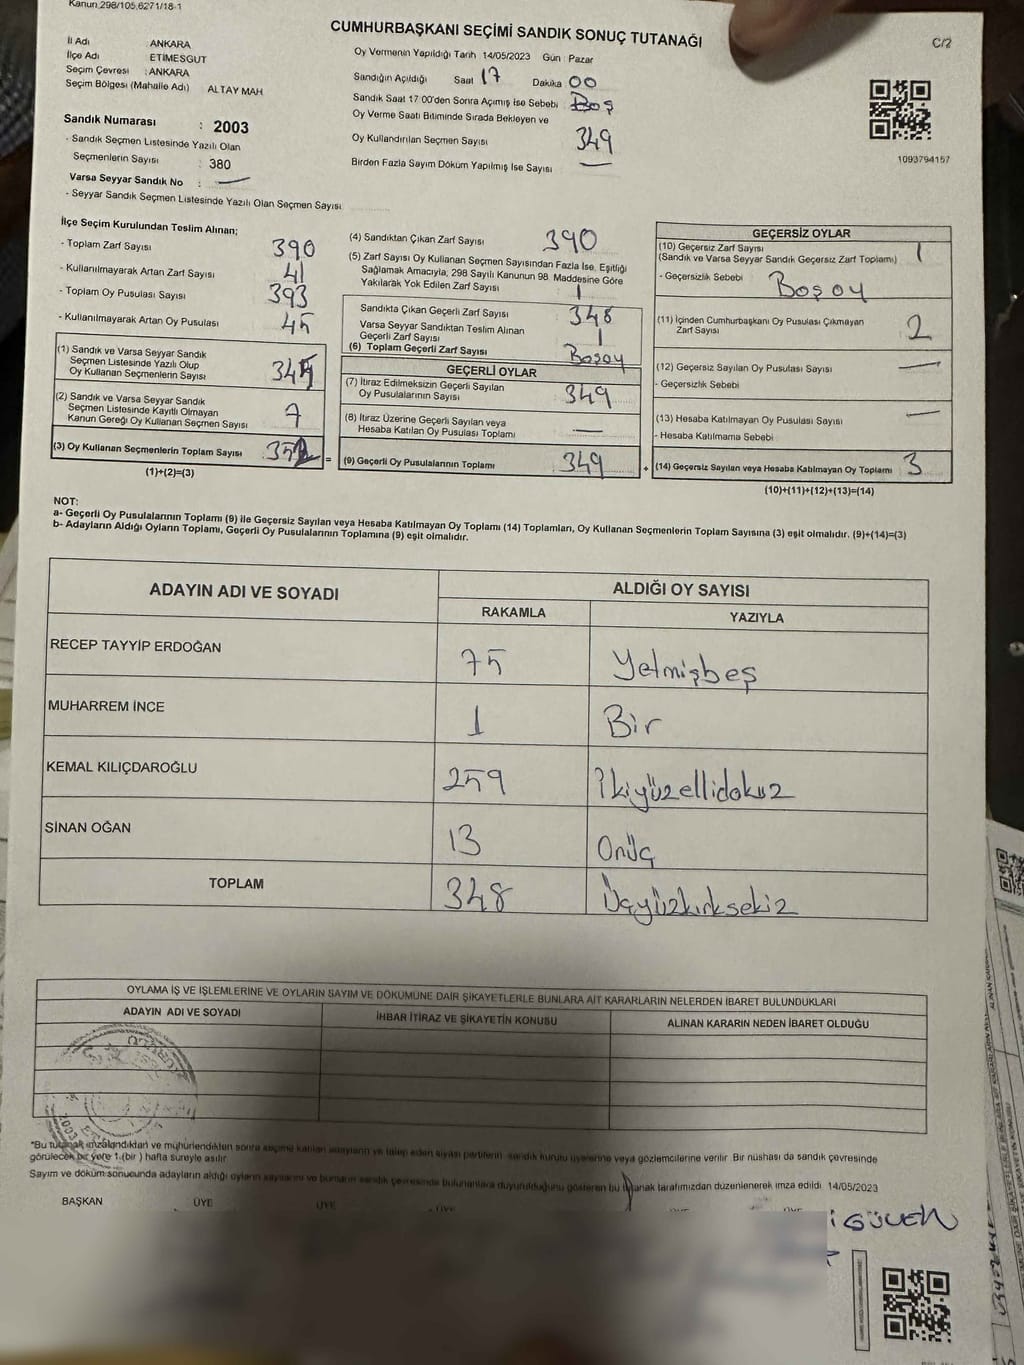 Kanun 298/105,6271/18-1
CUMHURBAŞKANI SEÇİMİ SANDIK SONUÇ TUTANAĞI
C/2
İl Adı : ANKARA
İlçe Adı : ETİMESGUT
Seçim Çevresi : ANKARA
Seçim Bölgesi (Mahalle Adı) ALTAY MAH
Sandık Numarası : 2003
- Sandık Seçmen Listesinde Yazılı Olan
Seçmenlerin Sayısı : 380
Varsa Seyyar Sandık No : —
- Seyyar Sandık Seçmen Listesinde Yazılı Olan Seçmen Sayısı
Oy Vermenin Yapıldığı Tarih 14/05/2023 Gün : Pazar
Sandığın Açıldığı Saat 17 Dakika 00
Sandık Saat 17 00'den Sonra Açımış İse Sebebi Boş
Oy Verme Saati Bitiminde Sırada Bekleyen ve
Oy Kullandırılan Seçmen Sayısı 349
Birden Fazla Sayım Döküm Yapılmış İse Sayısı —
1093794157
İlçe Seçim Kurulundan Teslim Alınan;
- Toplam Zarf Sayısı 390
- Kullanılmayarak Artan Zarf Sayısı 41
- Toplam Oy Pusulası Sayısı 393
- Kullanılmayarak Artan Oy Pusulası 45
(1) Sandık ve Varsa Seyyar Sandık
Seçmen Listesinde Yazılı Olup
Oy Kullanan Seçmenlerin Sayısı
(2) Sandık ve Varsa Seyyar Sandık
Seçmen Listesinde Kayıtlı Olmayan
Kanun Gereği Oy Kullanan Seçmen Sayısı 7
(3) Oy Kullanan Seçmenlerin Toplam Sayısı 352 =
(1)+(2)=(3)
(4) Sandıktan Çıkan Zarf Sayısı 390
(5) Zarf Sayısı Oy Kullanan Seçmen Sayısından Fazla İse, Eşitliği
Sağlamak Amacıyla, 298 Sayılı Kanunun 98. Maddesine Göre
Yakılarak Yok Edilen Zarf Sayısı 1
Sandıkta Çıkan Geçerli Zarf Sayısı 348
Varsa Seyyar Sandıktan Teslim Alınan
Geçerli Zarf Sayısı 1
(6) Toplam Geçerli Zarf Sayısı Boşoy
GEÇERLİ OYLAR
(7) İtiraz Edilmeksizin Geçerli Sayılan
Oy Pusulalarının Sayısı 349
(8) İtiraz Üzerine Geçerli Sayılan veya
Hesaba Katılan Oy Pusulası Toplamı —
(9) Geçerli Oy Pusulalarının Toplamı 349 +
GEÇERSİZ OYLAR
(10) Geçersiz Zarf Sayısı 1
(Sandık ve Varsa Seyyar Sandık Geçersiz Zarf Toplamı)
- Geçersizlik Sebebi Boşoy
(11) İçinden Cumhurbaşkanı Oy Pusulası Çıkmayan
Zarf Sayısı 2
(12) Geçersiz Sayılan Oy Pusulası Sayısı —
- Geçersizlik Sebebi
(13) Hesaba Katılmayan Oy Pusulası Sayısı —
- Hesaba Katılmama Sebebi
(14) Geçersiz Sayılan veya Hesaba Katılmayan Oy Toplamı 3
(10)+(11)+(12)+(13)=(14)
NOT:
a- Geçerli Oy Pusulalarının Toplamı (9) ile Geçersiz Sayılan veya Hesaba Katılmayan Oy Toplamı (14) Toplamları, Oy Kullanan Seçmenlerin Toplam Sayısına (3) eşit olmalıdır. (9)+(14)=(3)
b- Adayların Aldığı Oyların Toplamı, Geçerli Oy Pusulalarının Toplamına (9) eşit olmalıdır.
ADAYIN ADI VE SOYADI ALDIĞI OY SAYISI
RAKAMLA YAZIYLA
RECEP TAYYİP ERDOĞAN 75 Yetmişbeş
MUHARREM İNCE 1 Bir
KEMAL KILIÇDAROĞLU 259 İkiyüzellidokuz
SİNAN OĞAN 13 Onüç
TOPLAM 348 Üçyüzkırksekiz
OYLAMA İŞ VE İŞLEMLERİNE VE OYLARIN SAYIM VE DÖKÜMÜNE DAİR ŞİKAYETLERLE BUNLARA AİT KARARLARIN NELERDEN İBARET BULUNDUKLARI
ADAYIN ADI VE SOYADI İHBAR İTİRAZ VE ŞİKAYETİN KONUSU ALINAN KARARIN NEDEN İBARET OLDUĞU
*Bu tutanak imzalandıktan ve mühürlendikten sonra seçime katılan adayların ve talep eden siyasi partilerin sandık kurulu üyelerine veya gözlemcilerine verilir. Bir nüshası da sandık çevresinde
görülecek bir yere 1 (bir) hafta süreyle asılır.
Sayım ve döküm sonucunda adayların aldığı oyların sayılarını ve bunların sandık çevresinde bulunanlara duyurulduğunu gösteren bu tutanak tarafımızdan düzenlenerek imza edildi. 14/05/2023
BAŞKAN ÜYE ÜYE ÜYE ÜYE ÜYE
GÜVEN